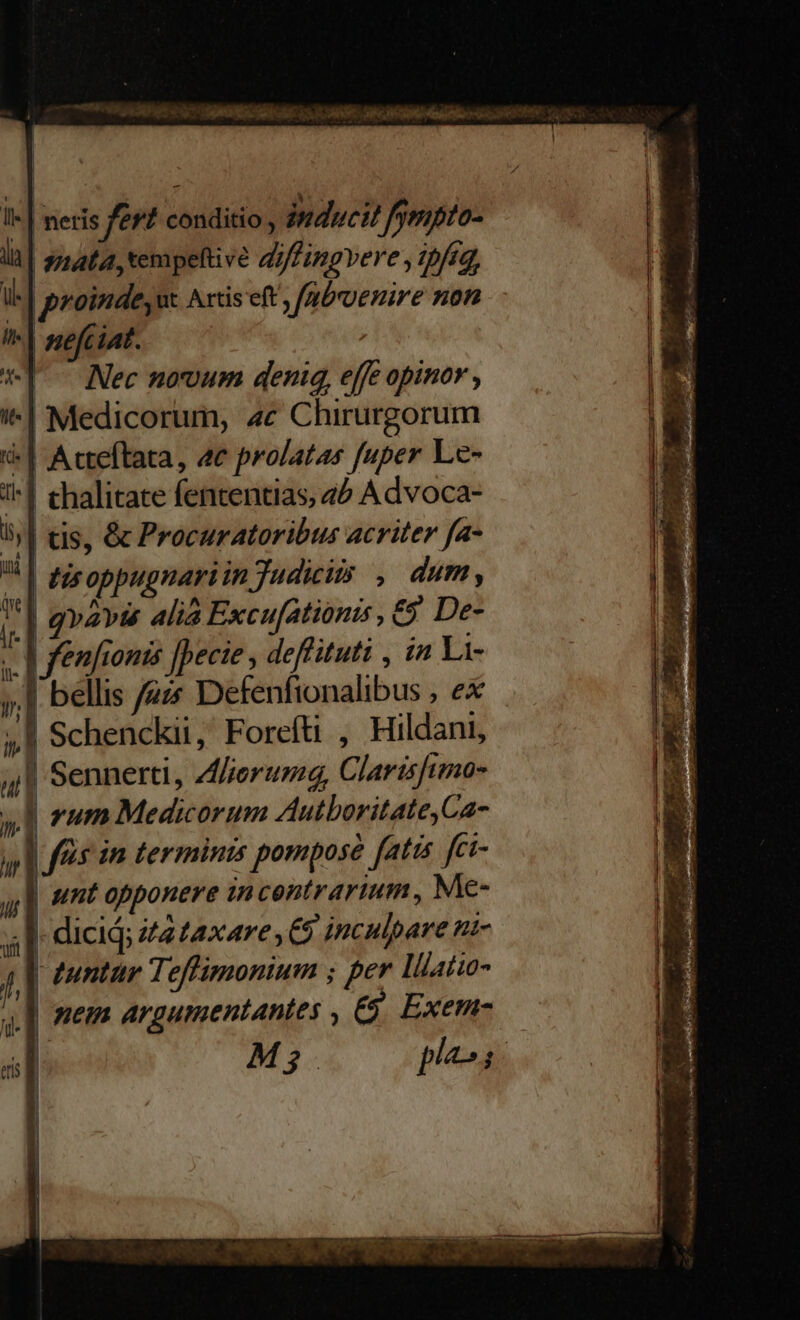 neris fert conditio, inducit ſympto-
mata, tempeſtivè diſtingvere, ipſiq;
proinde, ut Artis eſt, ſubvenire non
neſciat.
Nec novum deniq; eſſe opinor,
Medicorum, ac Chirurgorum
Atteſtata, ac prolatas ſuper Le-
thalitate ſententias, ab Advoca-
tis, & Procuratoribus acriter ſa-
tis oppugnari in Judiciis, dum,
qvàvis aliâ Excuſationis, & De-
fenſionis ſpecie, deſtituti, in Li-
bellis ſuis Defenſionalibus, ex
Schenckii, Foreſti, Hildani,
Sennerti, Aliorumq; Clarisſimo-
rum Medicorum Authoritate, Ca-
ſus in terminis pomposè ſatis ſci-
unt opponere in contrarium, Me-
diciq; ità taxare, & inculpare ni-
tuntur Teſtimonium; per Illatio-
nem argumentantes, & Exem-
M 3 pla;